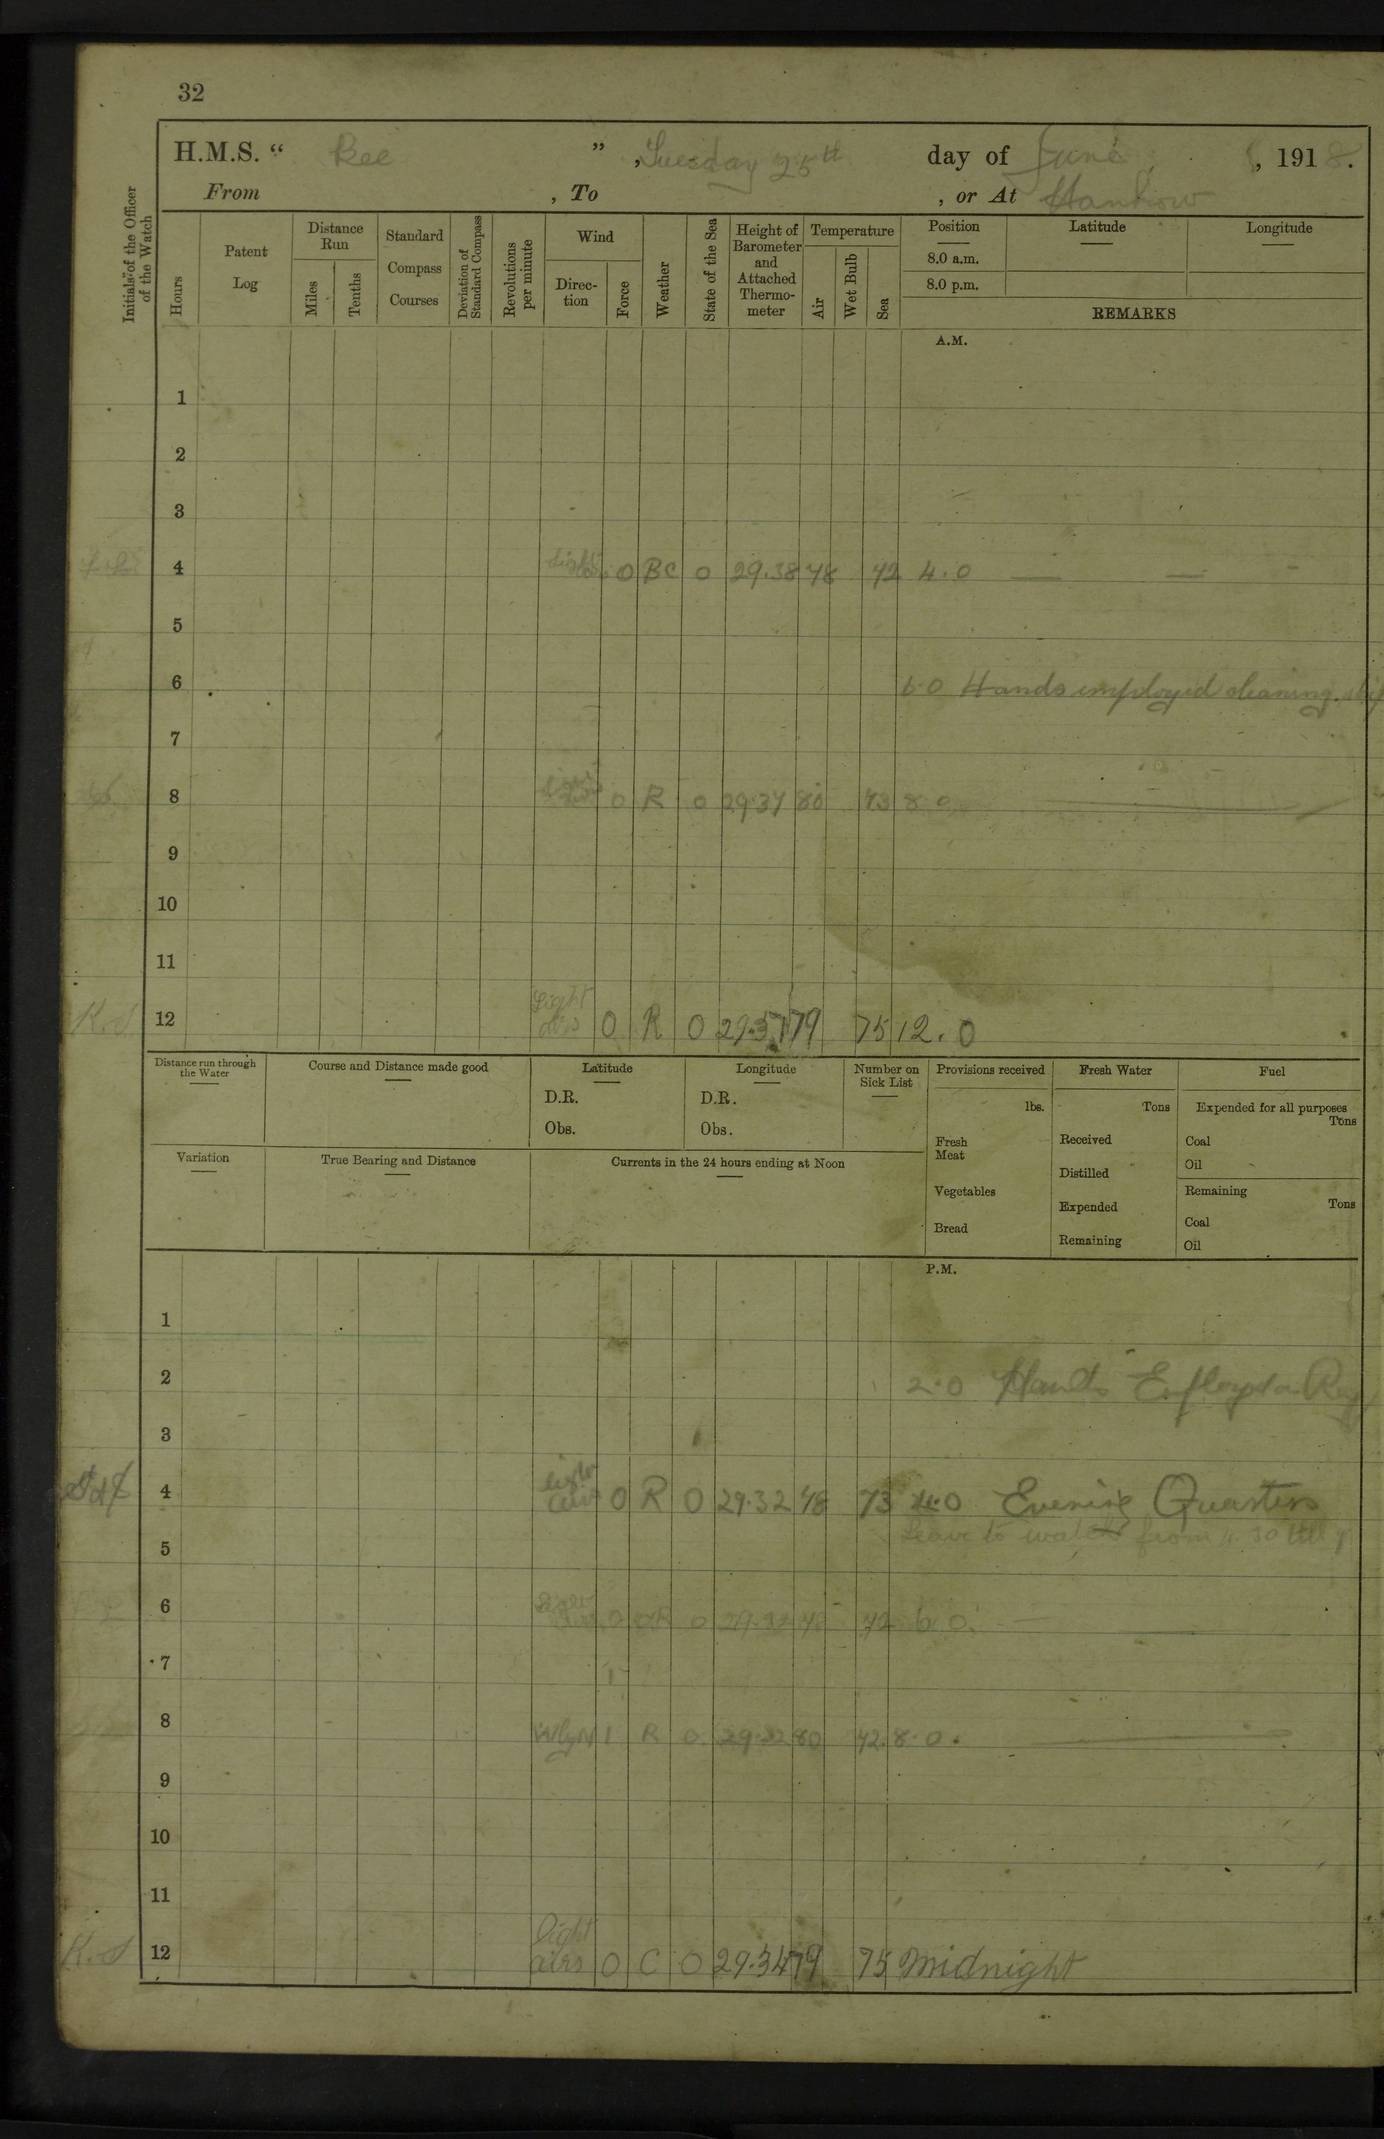 32
H.M.S. “ Bee ” , Tuesday 25th day of June , 1918.
From , To , or At Hankow
Initials of the Officer of the Watch
Hours
Patent Log
Distance Run
Miles
Tenths
Standard Compass Courses
Deviation of Standard Compass
Revolutions per minute
Wind
Direction
Force
Weather
State of the Sea
Height of Barometer and Attached Thermometer
Temperature
Air
Wet Bulb
Sea
Position
8.0 a.m.
8.0 p.m.
Latitude
Longitude
REMARKS
A.M.
1
2
3
4 Light 0 BC 0 29.38 78 72 4.0
5
6 6.0 Hands employed cleaning ship
7
8 0 R 0 29.37 80 73 8.0
9
10
11
K.S 12 Light airs 0 R 0 29.37 79 75 12.0
Distance run through the Water
Course and Distance made good
Latitude
D.R.
Obs.
Longitude
D.R.
Obs.
Number on Sick List
Provisions received
lbs.
Fresh Meat
Vegetables
Bread
Fresh Water
Tons
Received
Distilled
Expended
Remaining
Fuel
Expended for all purposes
Tons
Coal
Oil
Remaining
Tons
Coal
Oil
Variation
True Bearing and Distance
Currents in the 24 hours ending at Noon
P.M.
1
2 2.0 Hands
3
4 Light airs 0 R 0 29.32 78 73 4.0 Evening Quarters
Leave to watch from 4.30 till 7
5
6 0 R 0 29.32 78 72 6.0
7
8 WbyN 1 R 0 29.32 80 72 8.0
9
10
11
K.S 12 Light airs 0 C 0 29.34 79 75 Midnight